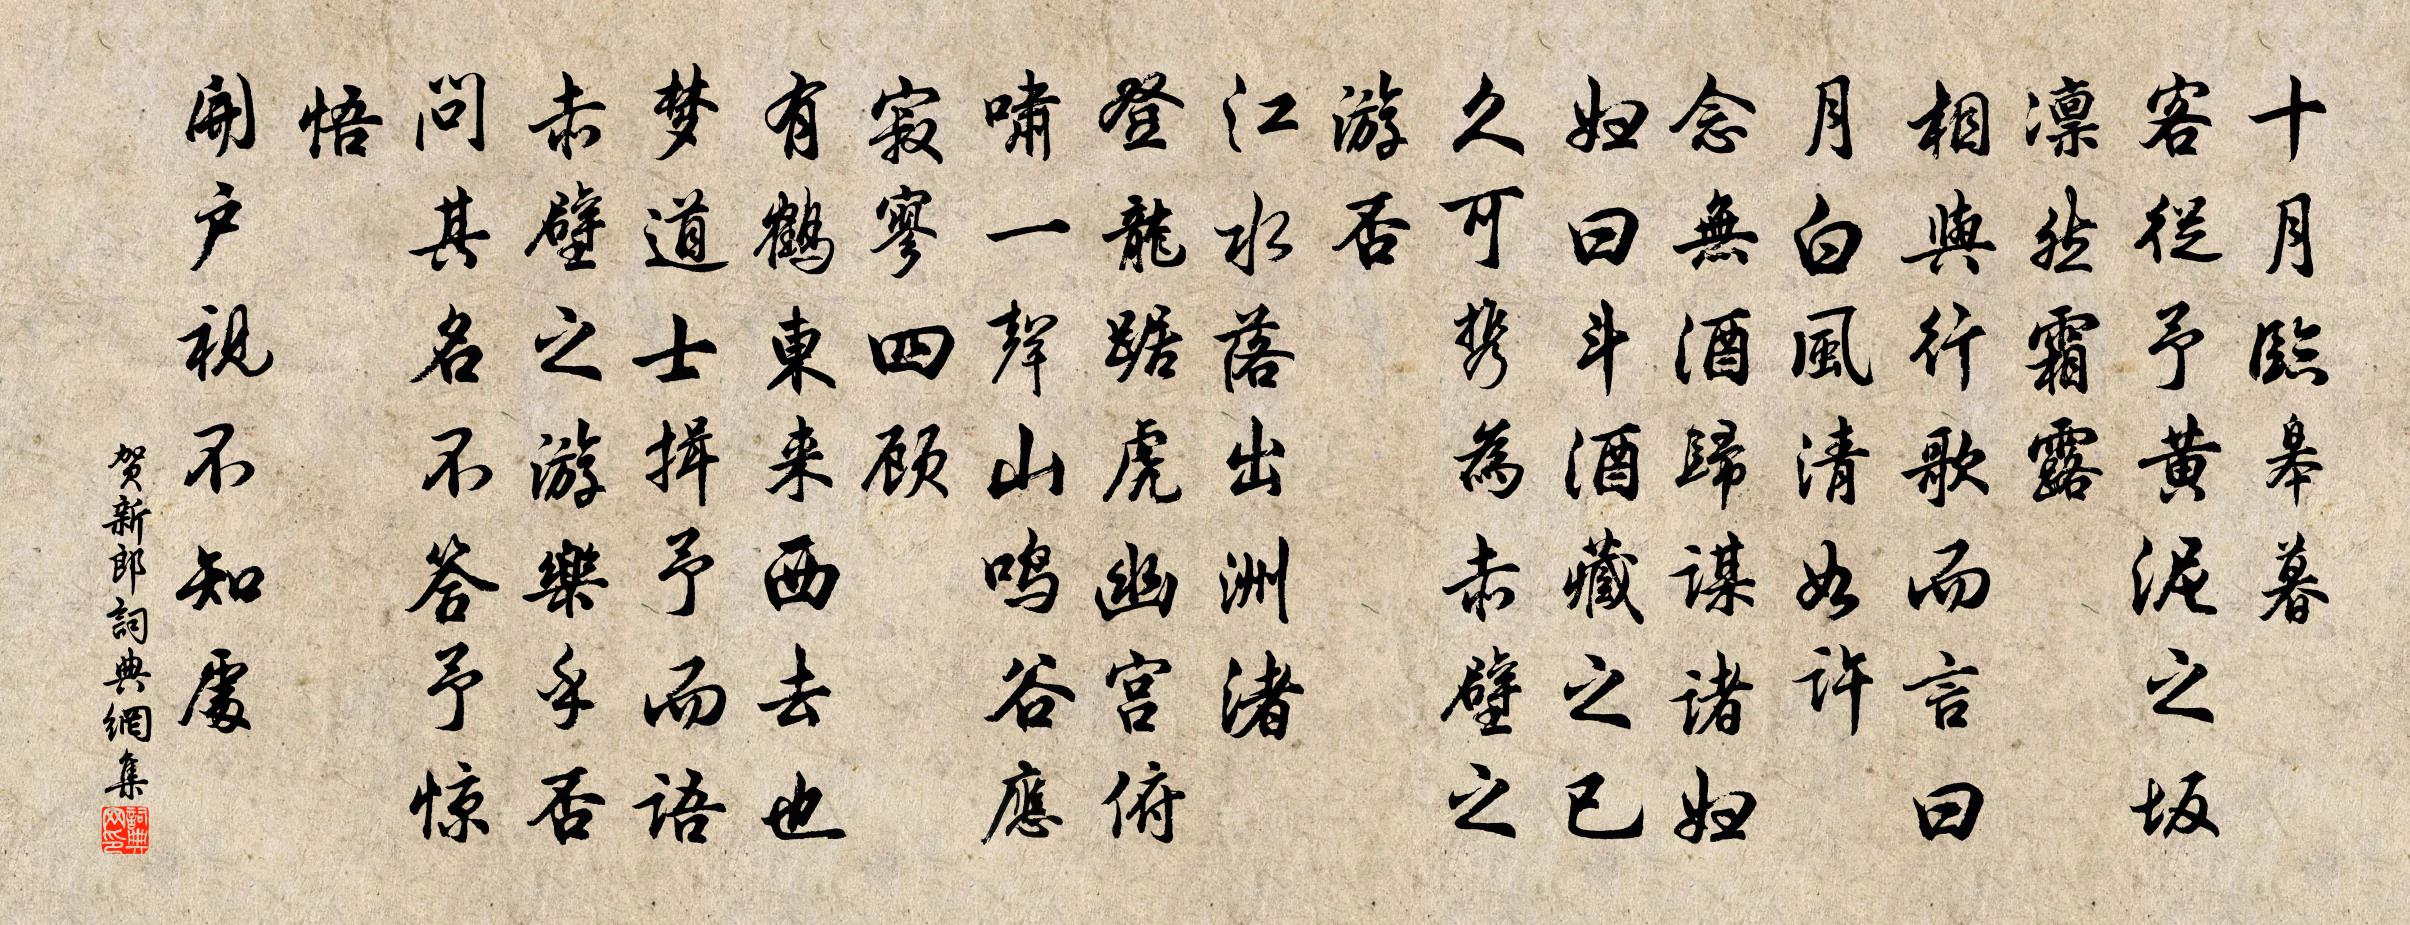 十月臨皋暮
客從予黄泥之坂
凛然霜露
相與行歌而言曰
月白風清如許
念無酒歸謀諸妇
妇曰斗酒藏之已
久可携為赤壁之
游否
江水落出洲渚
登龍踞虎幽宫俯
啸一聲山鸣谷應
寂寥四顾
有鶴東来西去也
梦道士揖予而語
赤壁之游樂乎否
問其名不答予惊
悟
開户視不知處
贺新郎詞典網集
詞典网印